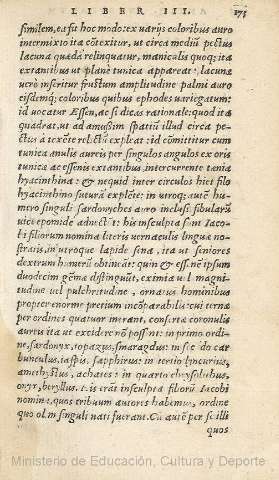 LIBER III. 175
similem, ea fit hoc modo: ex varijs coloribus auro
intermixto ita cōtexitur, ut circa mediū pectus
lacuna quædā relinquatur, maniculis quoq; ita
extantibus ut planè tunica appareat, lacunæ
verò inseritur frustum amplitudine palmi auro
eisdemq; coloribus quibus ephodes variegatum:
id vocatur Essen, ac si dicas rationale: quod ita
quadrat, ut ad amussim spatii illud circa pe-
ctus à texēte relictū expleat: id cōmittitur cum
tunica anulis aureis per singulos angulos ex oris
tunicæ ac essenis extantibus intercurrente tænia
hyacinthina: & nequid inter circulos hiet filo
hyacinthino suturā explēte: in utroq; autē hu-
mero singuli sardonyches auro inclusi fibularū
vice epomide adnectūt: his insculpta sunt Iaco-
bi filiorum nomina literis vernaculis linguæ no-
stratis, in utroque lapide sena, ita ut seniores
dextrum humerū obtineāt: quin & essenē ipsum
duodecim gēmæ distinguūt, eximia vel magni-
tudine vel pulchritudine, ornatus hominibus
propter enorme pretium incōparabilis: cui ternæ
per ordines quatuor inerant, consertæ coronulis
aureis ita ut excidere nō possint: in primo ordi-
ne, sardonyx, topazus, smaragdus: in secūdo car-
bunculus, iaspis, sapphirus: in tertio lyncurius,
amethystus, achates: in quarto chrysolithus,
onyx, beryllus: his erāt insculpta filiorū Iacobi
nomina, quos tribuum autores habemus, ordine
quo olim singuli nati fuerant. Cū autē per illi
quos
Ministerio de Educación, Cultura y Deporte